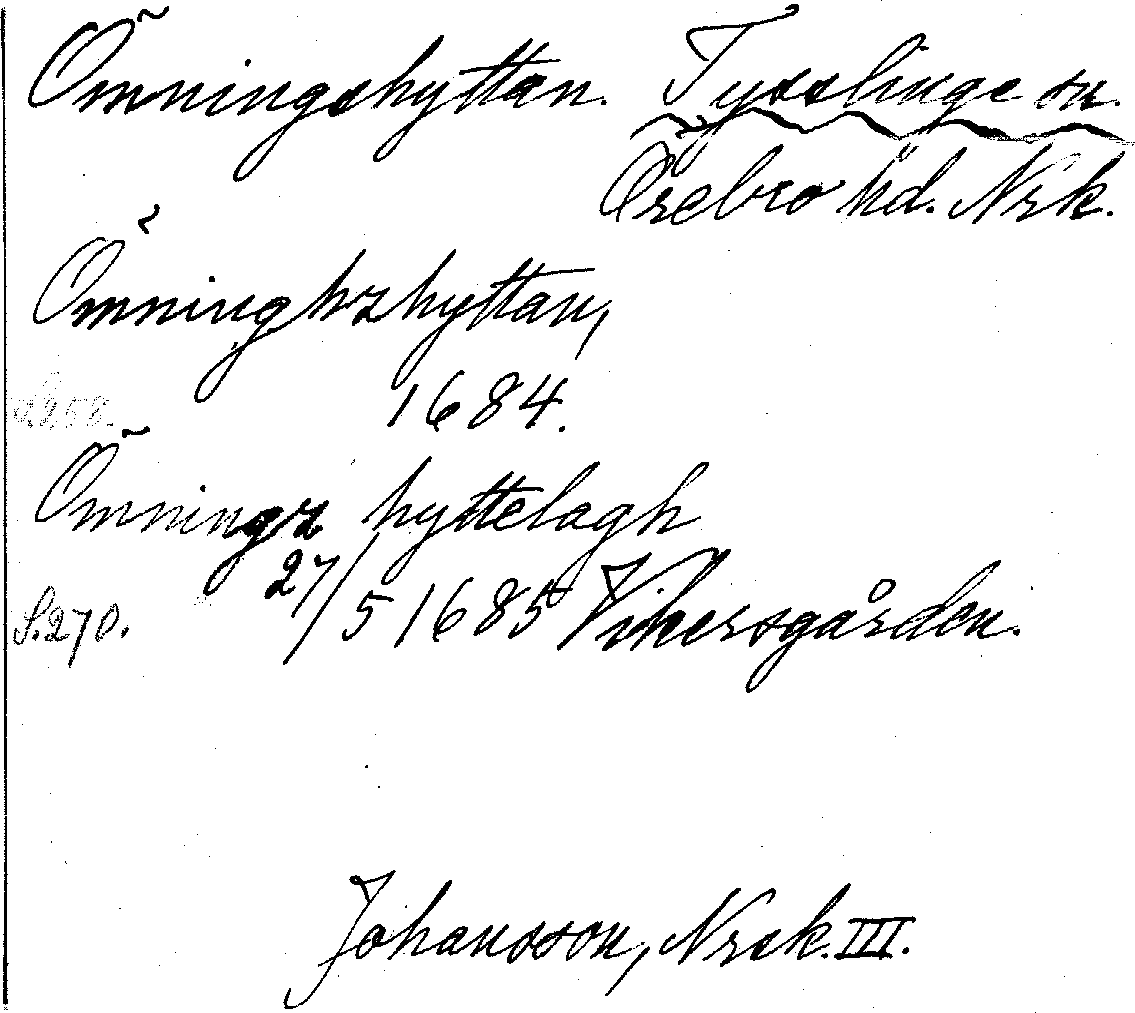 Ömningshyttan. Tysslinge sn.
Örebro hd. Nrk.
Ömninghzhyttan,
s. 258. 1684.
Ömningz hyttelagh
S. 270. 27/5 1685 Vikersgården.
Johansson, Nrck. III.